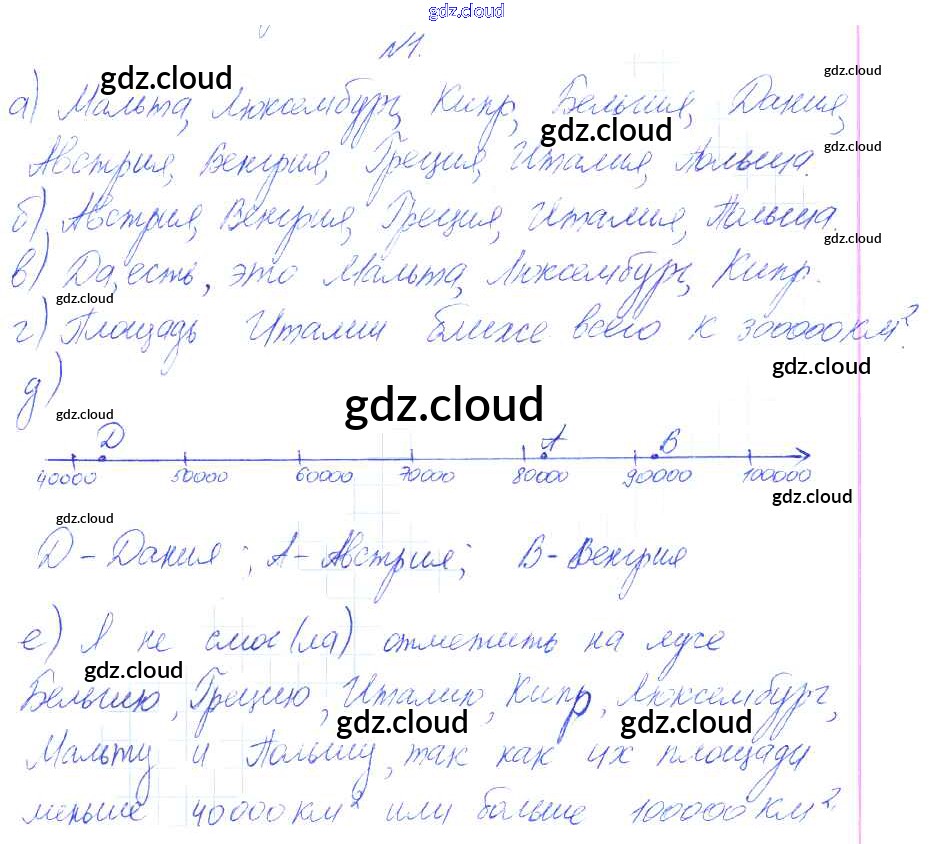 gdz.cloud
№1.
gdz.cloud gdz.cloud
а) Мальта, Люксембург, Кипр, Бельгия, Дания,
gdz.cloud gdz.cloud
Австрия, Венгрия, Греция, Италия, Польша.
б) Австрия, Венгрия, Греция, Италия, Польша.
gdz.cloud
в) Да, есть, это Мальта, Люксембург, Кипр.
gdz.cloud
г) Площадь Италии ближе всего к 300000 км².
gdz.cloud
д)
gdz.cloud gdz.cloud
Д А В
40000 50000 60000 70000 80000 90000 100000
gdz.cloud
gdz.cloud
Д - Дания; А - Австрия; В - Венгрия
е) Я не смог (ла) отметить на луче
gdz.cloud
Бельгию, Грецию, Италию, Кипр, Люксембург,
gdz.cloud gdz.cloud
Мальту и Польшу, так как их площади
меньше 40000 км² или больше 100000 км².